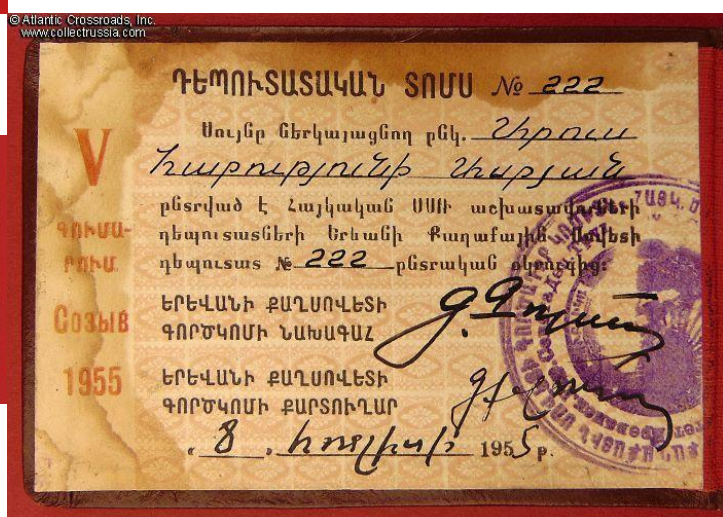 © Atlantic Crossroads, Inc.
www.collectrussia.com
ԴԵՊՈՒՏԱՏԱԿԱՆ ՏՈՄՍ № 222
Սույնը ներկայացնող ընկ.
Հարությունի
ընտրված է Հայկական ՍՍՌ աշխատավորների
դեպուտատների Երևանի Քաղաքային Սովետի
դեպուտատ № 222 ընտրական օկրուգից։
V
ԳՈՒՄԱ-
ՐՈՒՄ
Созыв
1955
ԵՐԵՎԱՆԻ ՔԱՂՍՈՎԵՏԻ
ԳՈՐԾԿՈՄԻ ՆԱԽԱԳԱՀ
ԵՐԵՎԱՆԻ ՔԱՂՍՈՎԵՏԻ
ԳՈՐԾԿՈՄԻ ՔԱՐՏՈՒՂԱՐ
8 հուլիսի 1955 թ.